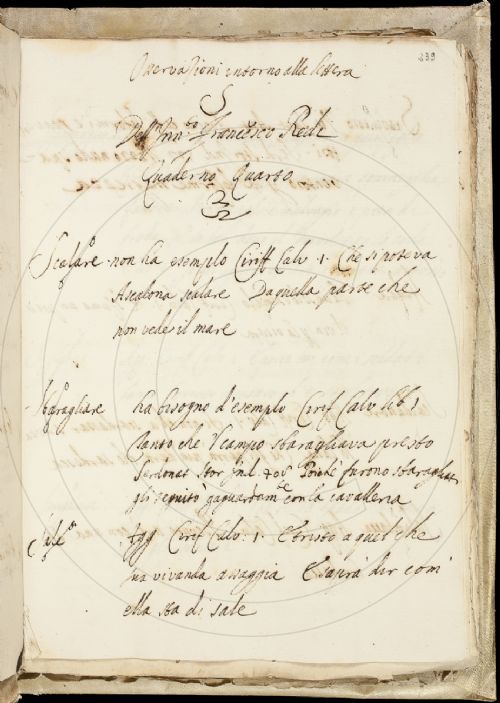 239
Osservazioni intorno alla lettera
S
Dell' Inn.to Francesco Redi
Quaderno Quarto
Scalare non ha esempio Ciriff Calv. 1. Che si poteva
Ascalona scalare Da quella parte che
non vede il mare
Sbaragliare ha bisogno d'esempio Cirif Calv lib 1
Tanto che 'l campo sbaragliava presto
Serdonat Stor Poiché furono sbaragliati
gli seguitò gagliardam.te con la cavalleria
Sale Cirif Calv. 1. E tristo a quel che
una vivanda assaggia E saprà dir com'
ella sta di sale